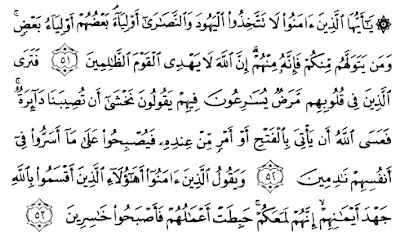 ۞ يَـٰٓأَيُّهَا ٱلَّذِينَ ءَامَنُوا۟ لَا تَتَّخِذُوا۟ ٱلْيَهُودَ وَٱلنَّصَـٰرَىٰٓ أَوْلِيَآءَ ۘ بَعْضُهُمْ أَوْلِيَآءُ بَعْضٍ ۚ
وَمَن يَتَوَلَّهُم مِّنكُمْ فَإِنَّهُۥ مِنْهُمْ ۗ إِنَّ ٱللَّهَ لَا يَهْدِى ٱلْقَوْمَ ٱلظَّـٰلِمِينَ ٥١ فَتَرَى
ٱلَّذِينَ فِى قُلُوبِهِم مَّرَضٌ يُسَـٰرِعُونَ فِيهِمْ يَقُولُونَ نَخْشَىٰٓ أَن تُصِيبَنَا دَآئِرَةٌ ۚ
فَعَسَى ٱللَّهُ أَن يَأْتِىَ بِٱلْفَتْحِ أَوْ أَمْرٍ مِّنْ عِندِهِۦ فَيُصْبِحُوا۟ عَلَىٰ مَآ أَسَرُّوا۟ فِىٓ
أَنفُسِهِمْ نَـٰدِمِينَ ٥٢ وَيَقُولُ ٱلَّذِينَ ءَامَنُوٓا۟ أَهَـٰٓؤُلَآءِ ٱلَّذِينَ أَقْسَمُوا۟ بِٱللَّهِ
جَهْدَ أَيْمَـٰنِهِمْ ۙ إِنَّهُمْ لَمَعَكُمْ ۚ حَبِطَتْ أَعْمَـٰلُهُمْ فَأَصْبَحُوا۟ خَـٰسِرِينَ ٥٣